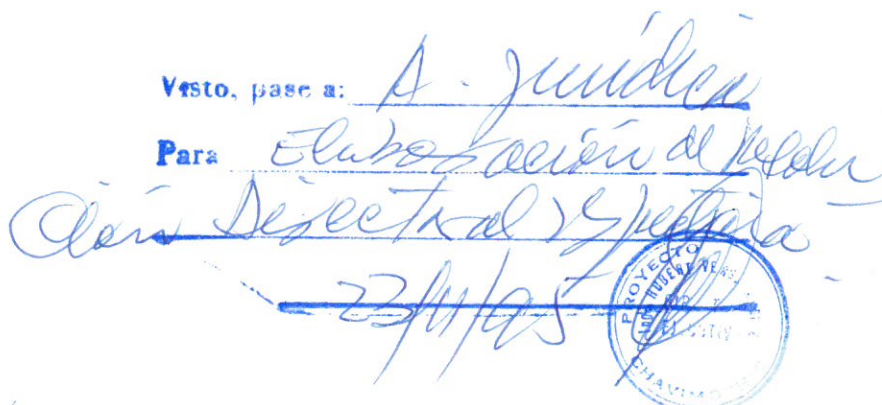 Visto, pase a: A. Jurídica
Para Elaboración de Resolu
ción Directoral respectiva
23/11/95
PROYECTO
CHAVIMOCHIC